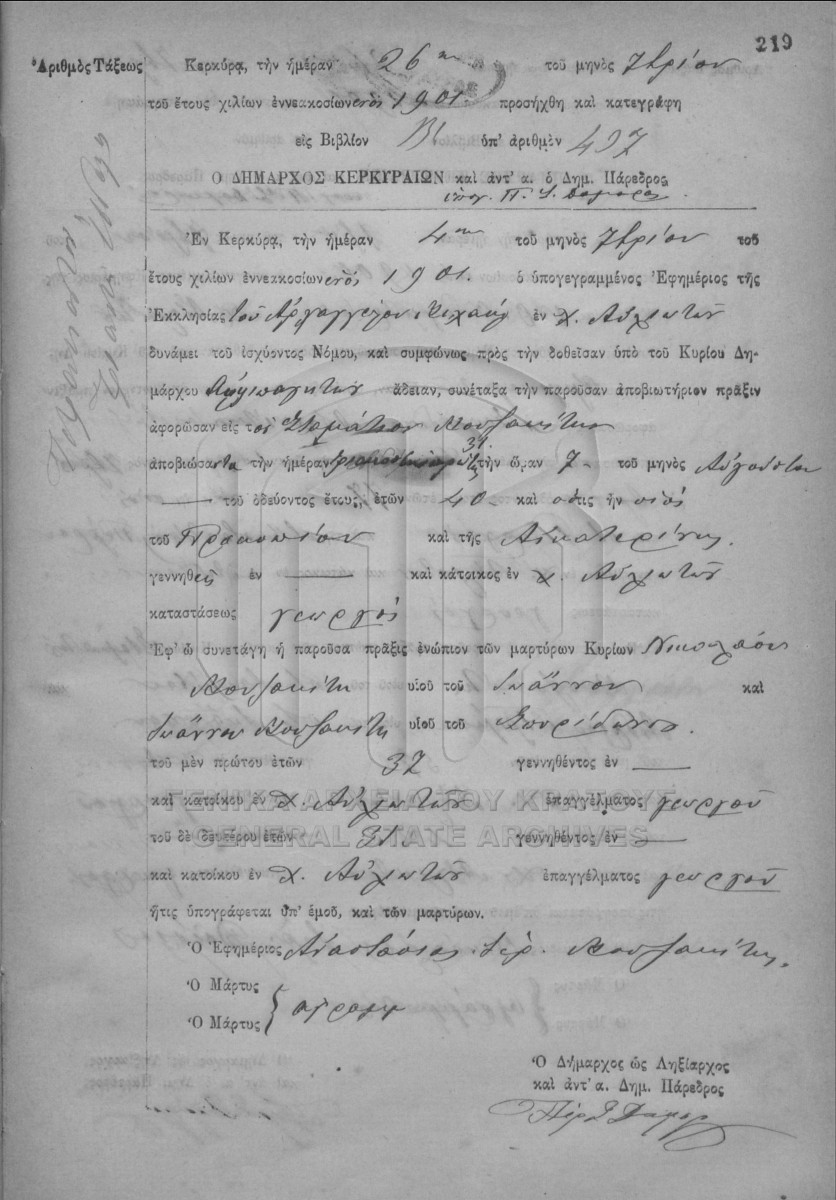 219
Ἀριθμὸς Τάξεως
Κερκύρᾳ, τὴν ἡμέραν 26ην τοῦ μηνὸς 7βρίου
τοῦ ἔτους χιλίων ἐννεακοσίων ἑνός 1901. προσήχθη καὶ κατεγράφη
εἰς Βιβλίον Β' ὑπ' ἀριθμὸν 497
Ο ΔΗΜΑΡΧΟΣ ΚΕΡΚΥΡΑΙΩΝ καὶ ἀντ' α. ὁ Δημ. Πάρεδρος
ὑπογ. Π.
Ἐν Κερκύρᾳ, τὴν ἡμέραν 4ην τοῦ μηνὸς 7βρίου τοῦ
ἔτους χιλίων ἐννεακοσίων ἑνός 1901. ὁ ὑπογεγραμμένος Ἐφημέριος τῆς
Ἐκκλησίας τοῦ Ἀρχαγγέλου Μιχαὴλ ἐν χ. Αὐλιωτῶν
δυνάμει τοῦ ἰσχύοντος Νόμου, καὶ συμφώνως πρὸς τὴν δοθεῖσαν ὑπὸ τοῦ Κυρίου Δη-
μάρχου ἄδειαν, συνέταξα τὴν παροῦσαν ἀποβιωτήριον πρᾶξιν
ἀφορῶσαν εἰς τὸν Σταμάτιον Κουζακίτην
ἀποβιώσαντα τὴν ἡμέραν 31 τὴν ὥραν 7 τοῦ μηνὸς Αὐγούστου
τοῦ ὁδεύοντος ἔτους, ἐτῶν 40 καὶ ὅστις ἦν υἱός
τοῦ Προκοπίου καὶ τῆς Αἰκατερίνης.
γεννηθεὶς ἐν — καὶ κάτοικος ἐν χ. Αὐλιωτῶν
καταστάσεως γεωργός
Ἐφ' ᾧ συνετάγη ἡ παροῦσα πρᾶξις ἐνώπιον τῶν μαρτύρων Κυρίων Νικολάου
Κουζακίτη υἱοῦ τοῦ Ἰωάννου καὶ
Ἰωάννου Κουζακίτη υἱοῦ τοῦ Σπυρίδωνος.
τοῦ μὲν πρώτου ἐτῶν 37 γεννηθέντος ἐν —
καὶ κατοίκου ἐν χ. Αὐλιωτῶν ἐπαγγέλματος γεωργοῦ
ΓΕΝΙΚΑ ΑΡΧΕΙΑ ΤΟΥ ΚΡΑΤΟΥΣ
τοῦ δὲ δευτέρου ἐτῶν 31. γεννηθέντος ἐν —
GENERAL STATE ARCHIVES
καὶ κατοίκου ἐν χ. Αὐλιωτῶν ἐπαγγέλματος γεωργοῦ
ἥτις ὑπογράφεται ὑπ' ἐμοῦ, καὶ τῶν μαρτύρων.
Ὁ Ἐφημέριος Ἀναστάσιος ἱερ. Κουζακίτης.
Ὁ Μάρτυς
Ὁ Μάρτυς
Ὁ Δήμαρχος ὡς Ληξίαρχος
καὶ ἀντ' α. Δημ. Πάρεδρος